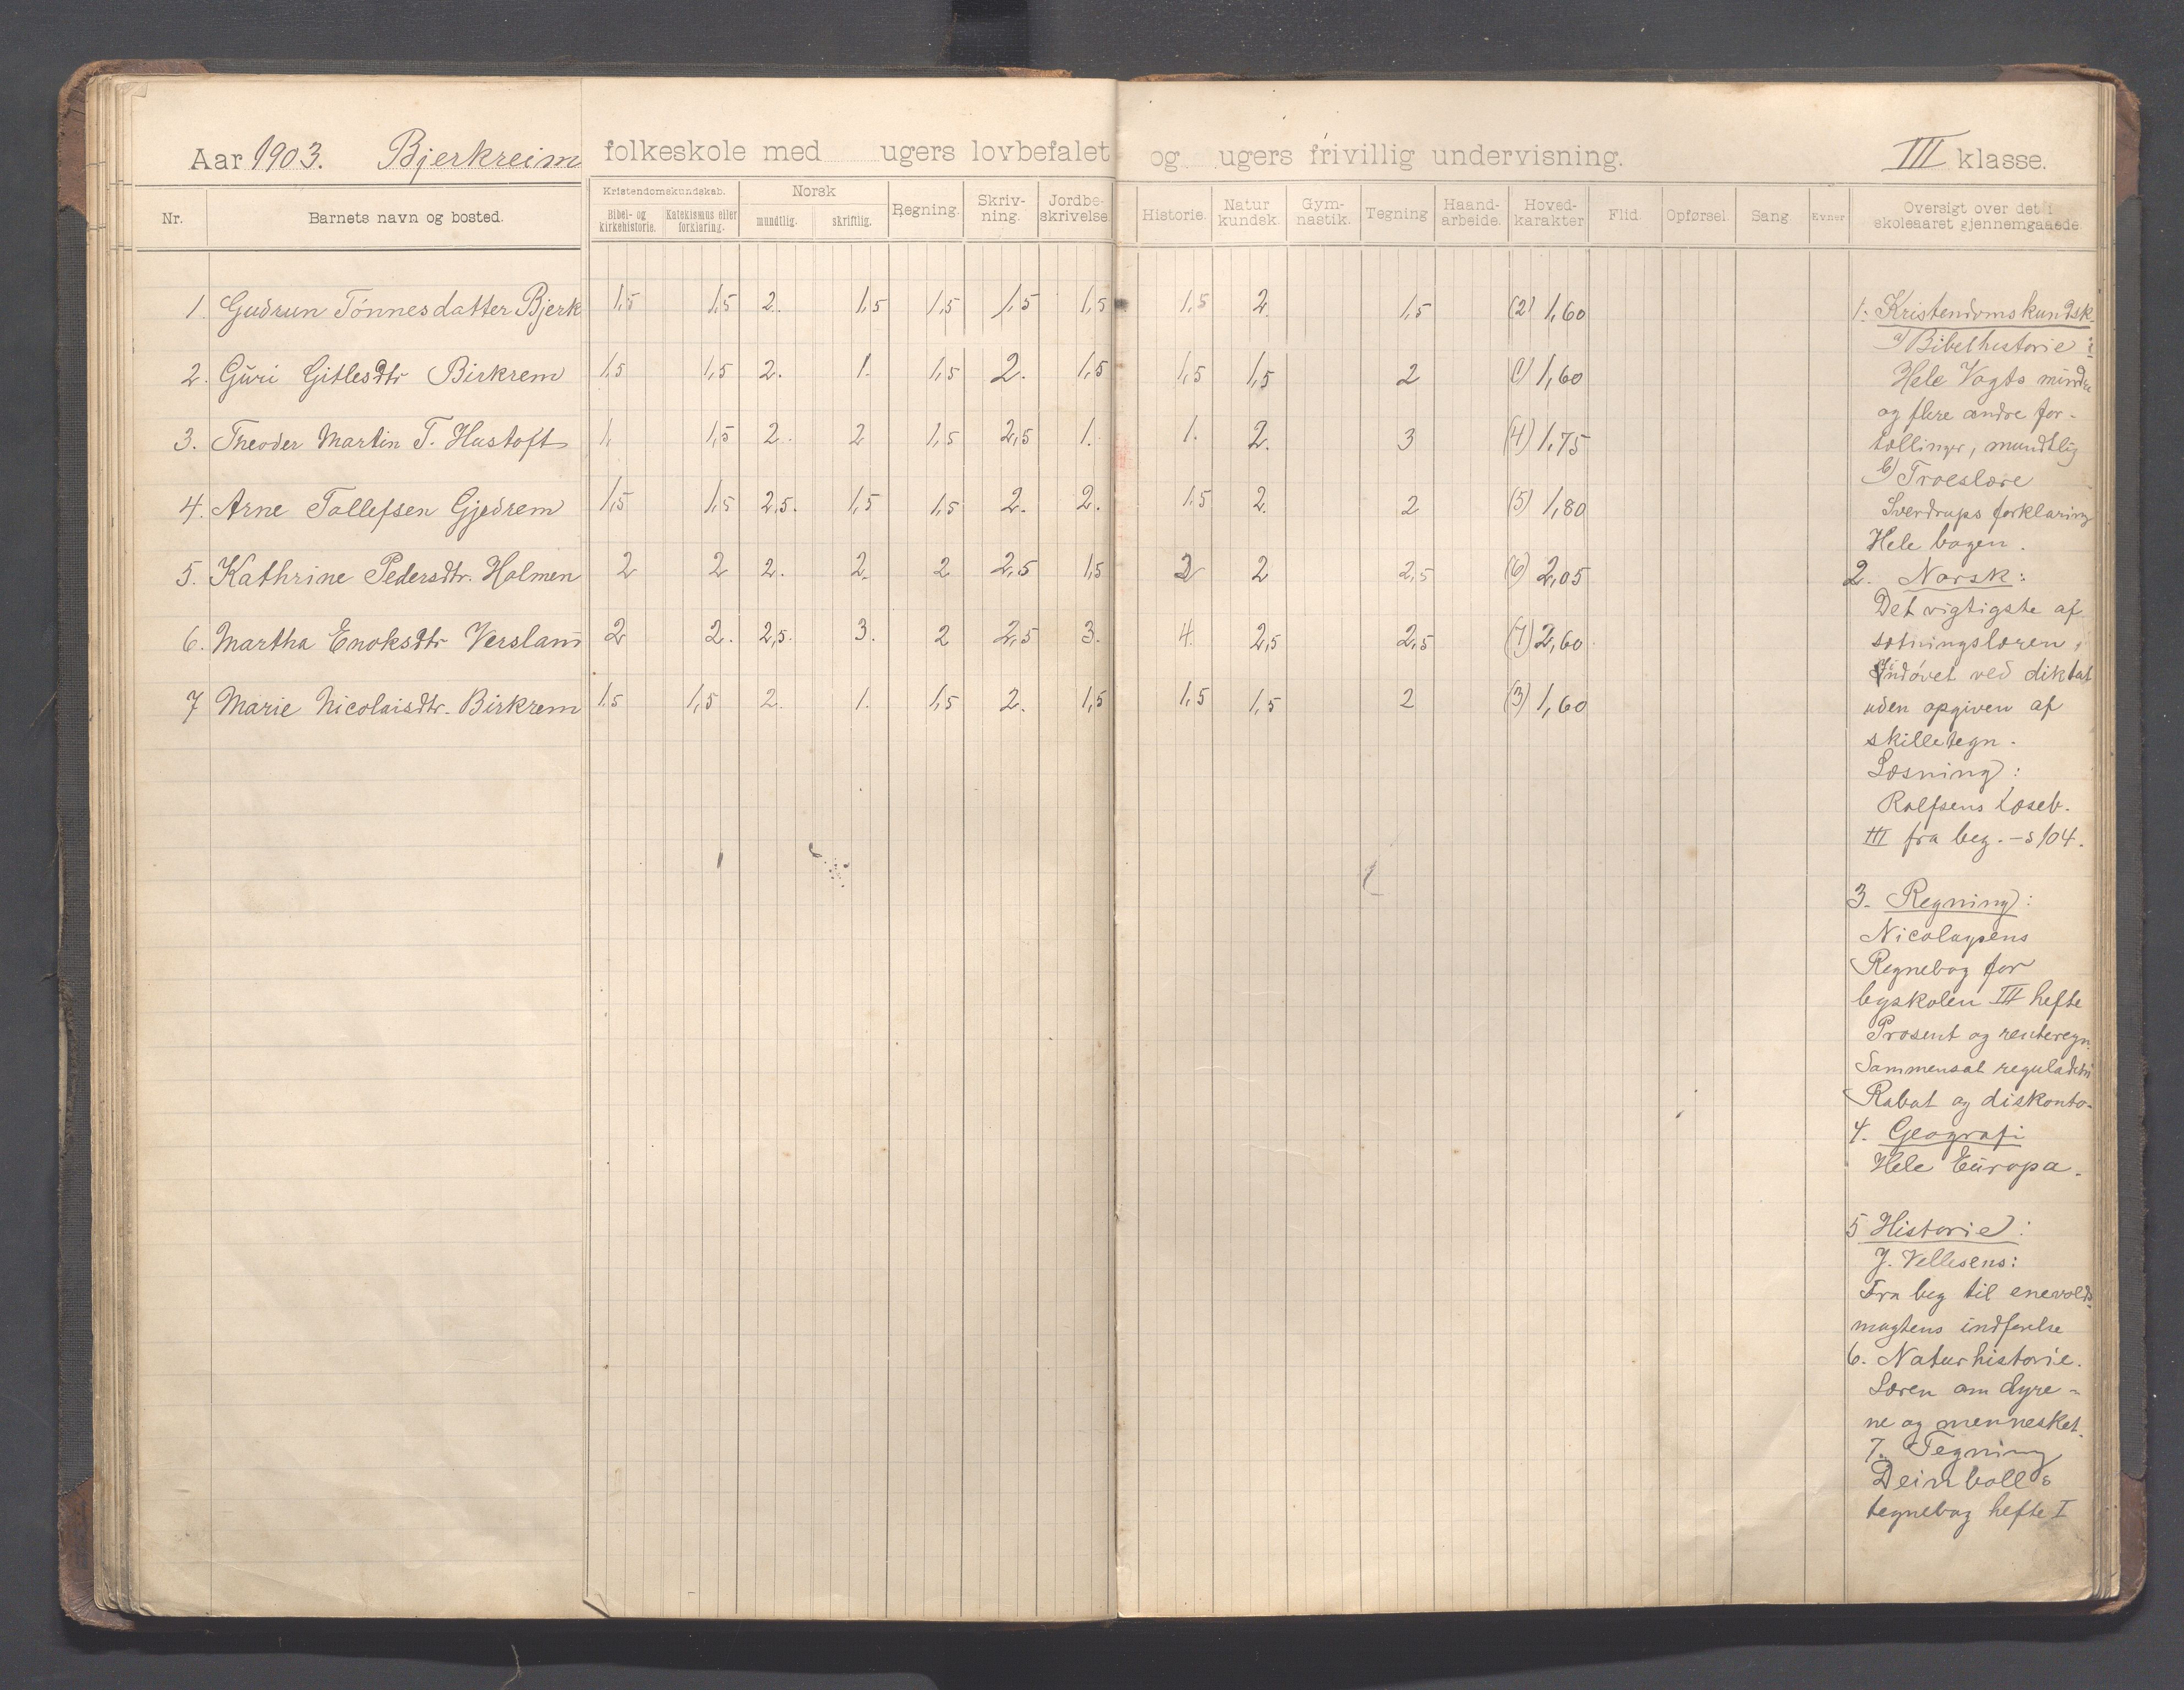 Aar 1903. Bjerkreim folkeskole med ugers lovbefalet og ugers frivillig undervisning. III klasse.
Nr. Barnets navn og bosted. Kristendomskundskab. Bibel- og kirkehistorie. Katekismus eller forklaring. Norsk mundtlig. skriftlig. Regning. Skriv-ning. Jordbe-skrivelse. Historie. Natur kundsk. Gym-nastik. Tegning Haand-arbeide. Hoved-karakter Flid. Opførsel. Sang. Evner Oversigt over det i skoleaaret gjennemgaaede.
1. Gudrun Tønnesdatter Bjerk 1,5 1,5 2. 1,5 1,5 1,5 1,5 1,5 2. 1,5 (2) 1,60
2. Guri Gitlesdtr Birkrem 1,5 1,5 2. 1. 1,5 2. 1,5 1,5 1,5 2 (1) 1,60
3. Theoder Martin T. Hustoft 1, 1,5 2. 2 1,5 2,5 1. 1. 2. 3 (4) 1,75
4. Arne Tollefsen Gjedrem 1,5 1,5 2,5. 1,5 1,5 2. 2. 1,5 2. 2 (5) 1,80
5. Kathrine Pedersdtr. Holmen 2 2 2. 2. 2 2,5 1,5 2 2 2,5 (6) 2,05
6. Martha Enoksdtr Versland 2 2. 2,5. 3. 2 2,5 3. 4. 2,5 2,5 (7) 2,60
7 Marie Nicolaisdtr. Birkrem 1,5 1,5 2. 1. 1,5 2. 1,5 1,5 1,5 2 (3) 1,60
1. Kristendomskundsk.
a) Bibelhistorie :
Hele Vogts mindre
og flere andre for-
tællinger, mundtlig
b) Troeslære
Sverdrups forklaring
Hele bogen.
2. Norsk:
Det vigtigste af
sætningslæren,
Indøvet ved diktat
uden opgiven af
skilletegn.
Læsning:
Rolfsens Læseb.
III fra beg. - s 104.
3. Regning:
Nicolaysens
Regnebog for
byskolen III hefte
Prosent og renteregn.
Sammensat reguladetri
Rabat og diskonto.
4. Geografi
Hele Europa.
5 Historie:
J. Vellesens:
Fra beg til enevolds-
magtens indførelse
6. Naturhistorie.
Læren om dyre-
ne og mennesket.
7. Tegning
Deinbolls
tegnebog hefte I